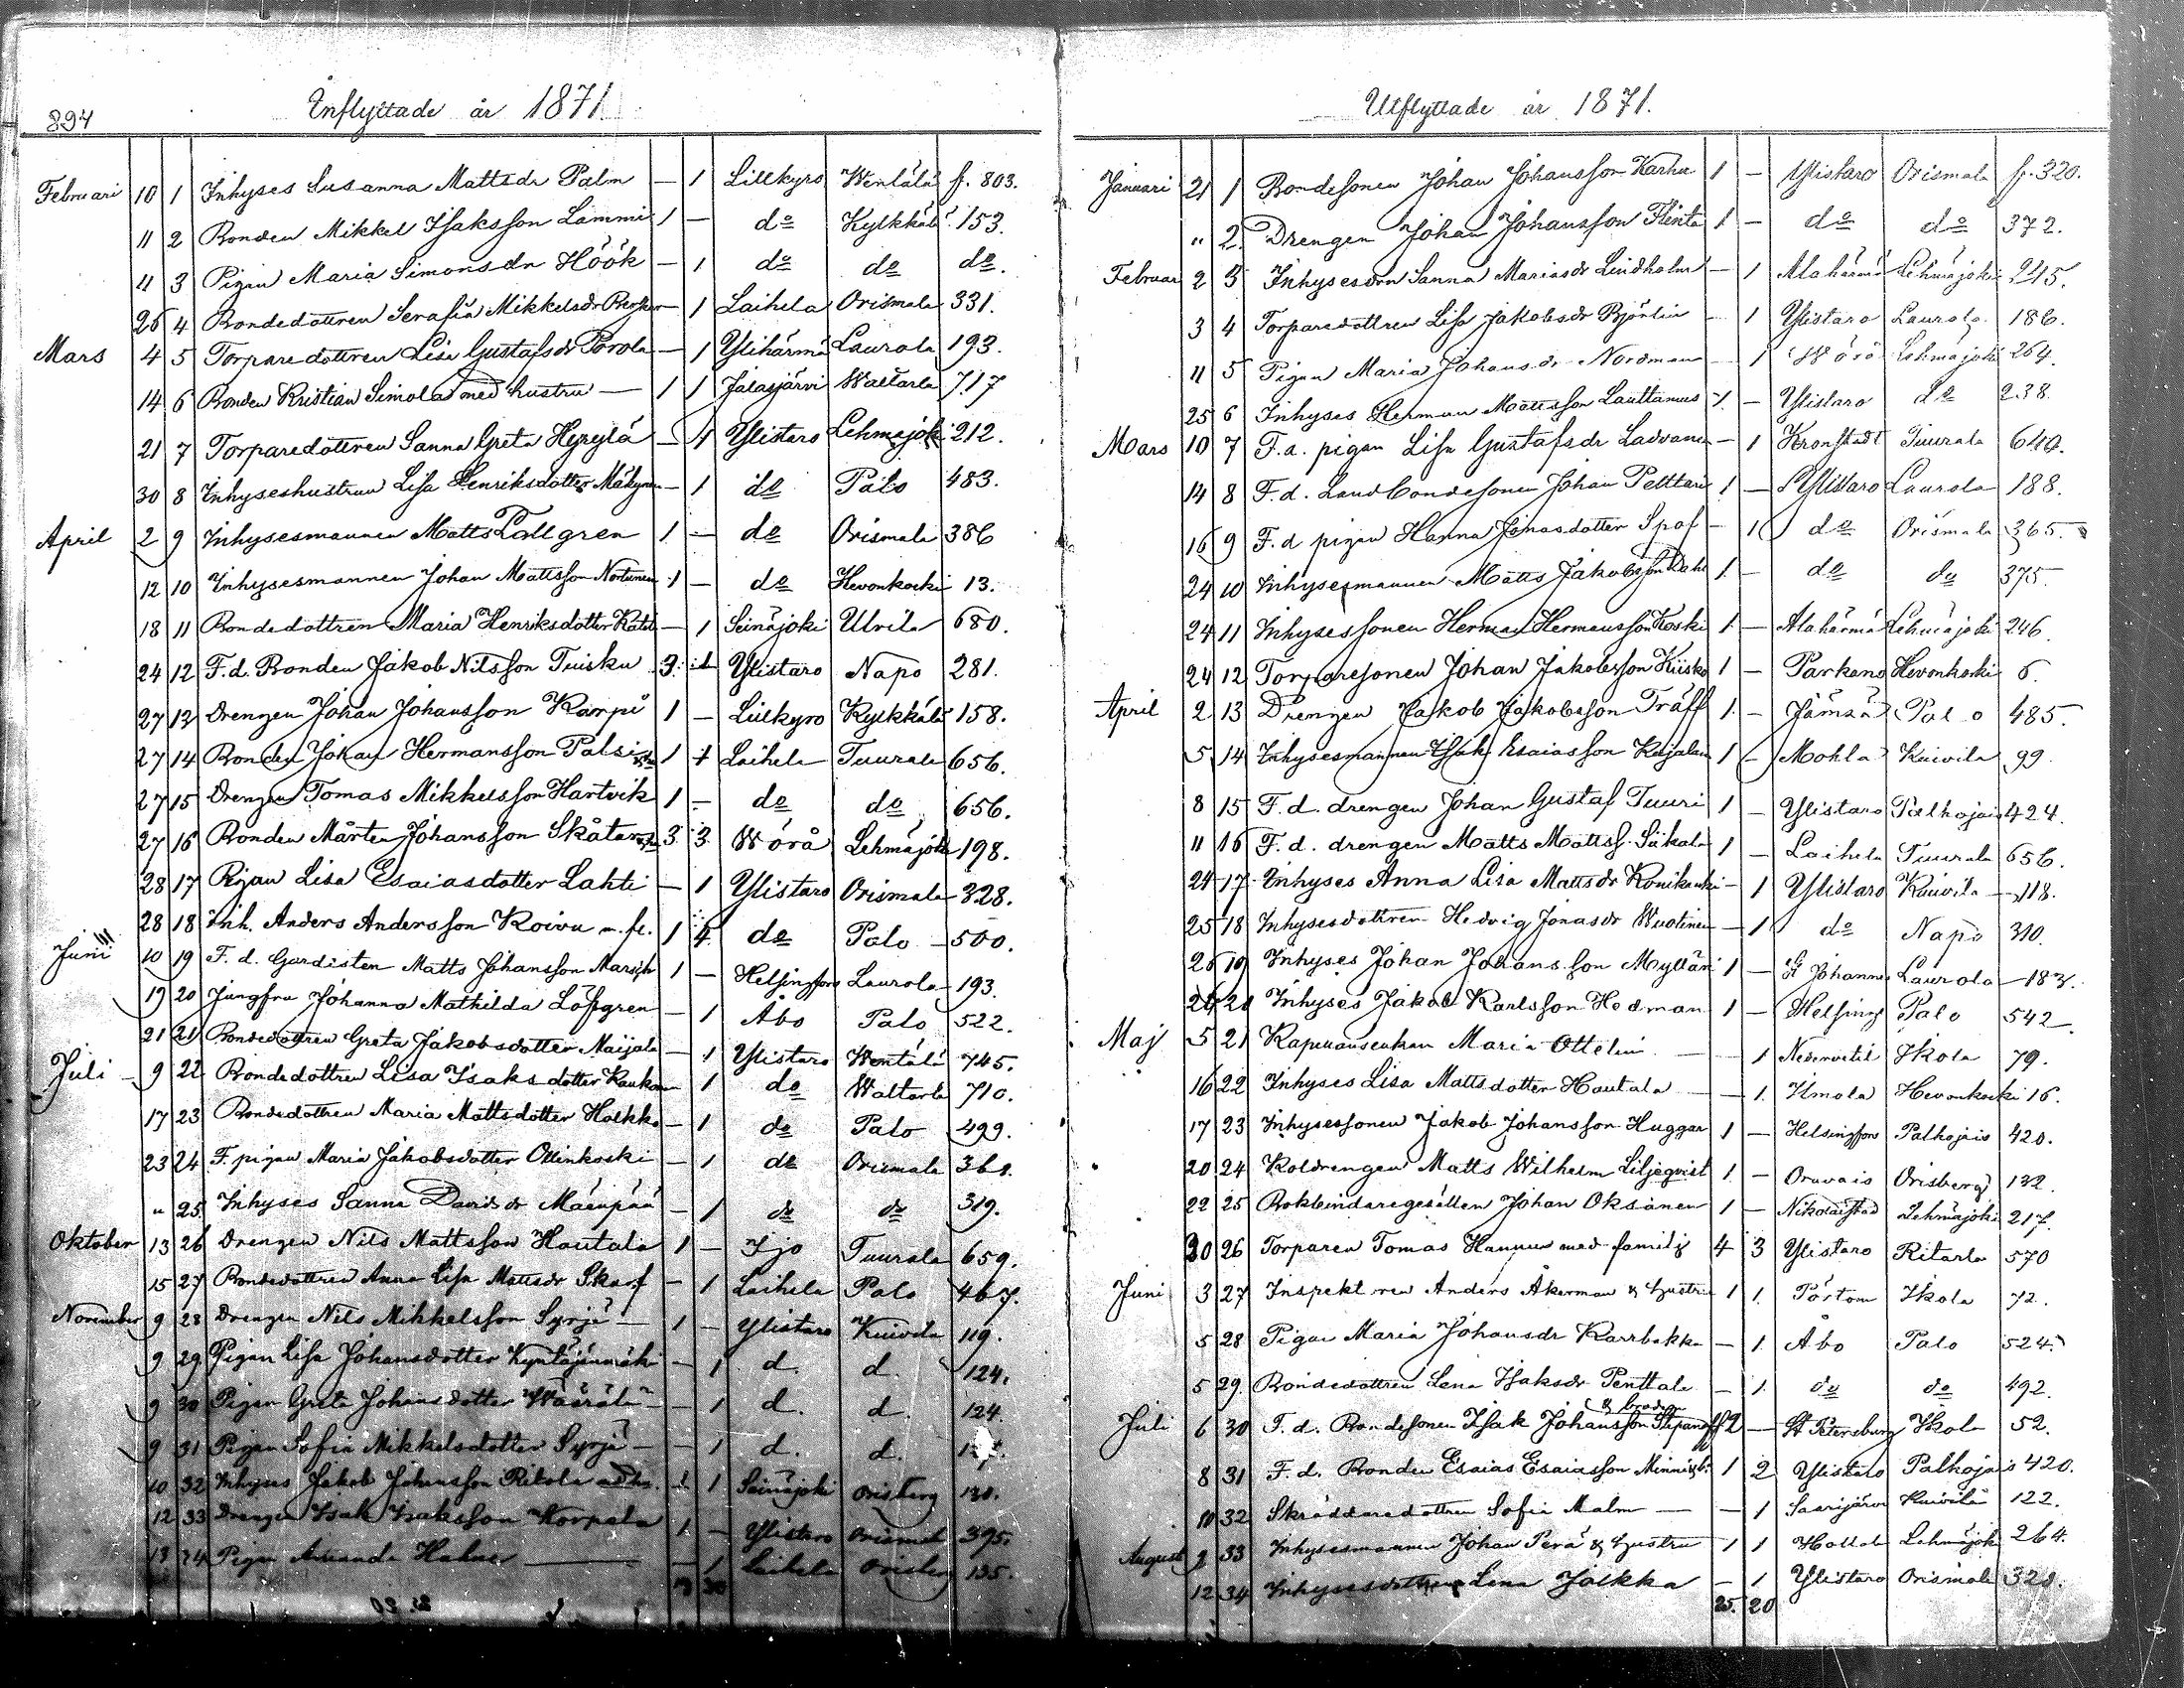 894
Inflyttade år 1871
Februari 10 1 Inhyses Susanna Mattsdr Palm — 1 Lillkyro Wentälä f. 803.
11 2 Bonden Mikkel Isaksson Lammi 1 — do Kylkkälä 153.
11 3 Pigan Maria Simonsdr Höök — 1 do do do.
26 4 Bondedottren Serafia Mikkelsdr — 1 Laihela Orismala 331.
Mars 4 5 Torparedottren Lisa Gustafsdr Porola — 1 Ylihärmä Laurola 193.
14 6 Bonden Kristian Simola med hustru — 1 1 Jalasjärvi Waltarla 717
21 7 Torparedottren Sanna Greta Hyrylä — 1 Ylistaro Lehmäjoki 212.
30 8 Inhyseshustrun Lisa Henriksdotter Mäkynen — 1 do Palo 483.
April 2 9 Inhysesmannen Matts Tallgren 1 — do Orismala 386
12 10 Inhysesmannen Johan Mattsson Nortunen 1 — do Hevonkoski 13.
18 11 Bondedottren Maria Henriksdotter — 1 Seinäjoki Ulvila 680.
24 12 F.d. Bonden Jakob Nilsson Tuisku 3. 1 Ylistaro Napo 281.
27 13 Drengen Johan Johansson Karpi 1 — Lillkyro Kylkkälä 158.
27 14 Bonden Johan Hermansson Palsi 1 1 Laihela Tuurala 656.
27 15 Drengen Tomas Mikkelsson Hartvik 1 — do do 656.
27 16 Bonden Mårten Johansson Skåtar 3 3 Wörå Lehmäjoki 198.
28 17 Pigan Lisa Esaiasdotter Lahti — 1 Ylistaro Orismala 328.
28 18 Inh. Anders Andersson Koivu m. fl. 1 4 do Palo 500.
Juni 10 19 F. d. Gardisten Matts Johansson 1 — Helsingfors Laurola 193.
19 20 Jungfru Johanna Mathilda Löfgren — 1 Åbo Palo 522.
21 21 Bondedottren Greta Jakobsdotter Maijala — 1 Ylistaro Wentälä 745.
Juli 9 22 Bondedottren Lisa Isaksdotter — 1 do Waltarla 710.
17 23 Bondedottren Maria Mattsdotter Holkko — 1 do Palo 499.
23 24 F. pigan Maria Jakobsdotter Ollinkoski — 1 do Orismala 361.
" 25. Inhyses Sanna Davidsdr Mäenpää — 1 do do 319.
Oktober 13 26 Drengen Nils Mattsson Hautala 1 — Ijo Tuurala 659.
15 27 Bondedottren Anna Lisa Mattsdr Skarf — 1 Laihela Palo 467.
November 9 28 Drengen Nils Mikkelsson Syrjä 1 — Ylistaro Kuivila 119.
9 29 Pigan Lisa Johansdotter — 1 d. d. 124.
9 30 Pigan Greta Johansdotter Wäärälä — 1 d. d. 124.
9 31 Pigan Sofia Mikkelsdotter Syrjä — 1 d. d.
10 32 Inhyses Jakob Johansson Ritola 1 1 Seinäjoki Orisberg 130.
12 33 Drengen Isak Isaksson Korpela 1 — Ylistaro Orismala 395.
13 34 Pigan Amanda — 1 Laihela Orisberg 135.
Utflyttade år 1871.
Januari 21 1 Bondesonen Johan Johansson Karhu 1 — Ylistaro Orismala f. 320.
" 2. Drengen Johan Johansson Flinta 1 — do do 372.
Februari 2 3 Inhysesdon Sanna Mariasdr Lindholm — 1 Alahärmä Lehmäjoki 245.
3 4 Torparedottren Lisa Jakobsdr Björlin — 1 Ylistaro Laurola 186.
11 5 Pigan Maria Johansdr Nordman — 1 Wörå Lehmäjoki 264.
25 6 Inhyses Herman Mattsson Lauttamus 1 — Ylistaro do 238.
Mars 10 7 F.a. pigan Lisa Gustafsdr — 1 Kronstadt Tuurala 640.
14 8 F.d. Landbondesonen Johan Pelttari 1 — Ylistaro Laurola 188.
16 9 F.d pigan Hanna Jonasdotter Spof — 1 do Orismala 365.
24 10 Inhysesmannen Matts Jakobsson 1 — do do 375.
24 11 Inhysessonen Herman Hermansson Koski 1 — Alahärmä Lehmäjoki 246.
24 12 Torparesonen Johan Jakobsson Kiisko 1 — Parkano Hevonkoski 6.
April 2 13 Drengen Jakob Jakobsson Träff 1. — Jämsä Palo 485.
5 14 Inhysesmannen Isak Esaiasson 1 — Mohla Kuivila 99.
8 15 F.d. drengen Johan Gustaf Tuuri 1 — Ylistaro Palhojais 424.
11 16 F. d. drengen Matts Mattsf. Säkala 1 — Laihela Tuurala 656.
24 17 Inhyses Anna Lisa Mattsdr — 1 Ylistaro Kuivila 118.
25 18 Inhysesdottren Hedvig Jonasdr Wuotinen — 1 do Napo 310.
26 19 Inhyses Johan Johansson Mylläri 1 — St Johannes Laurola 183.
26 20 Inhyses Jakob Karlsson Hedman 1 — Helsing Palo 542.
Maj 5 21 Kapellansenkan Maria Ottelin — 1 Nedervetil Ikola 79.
16 22 Inhyses Lisa Mattsdotter Hautala — 1. Ilmola Hevonkoski 16.
17 23 Inhysessonen Jakob Johansson Huggar 1 — Helsingfors Palhojais 420.
20 24 Koldrengen Matts Wilhelm Liljeqvist 1. — Oravais Orisberg 132.
22 25 Bokbindaregesällen Johan Oksanen 1 — Nikolaistad Lehmäjoki 217.
30 26 Torparen Tomas Hannus med familj 4 3 Ylistaro Ritarla 570
Juni 3 27 Inspektoren Anders Åkerman & hustru 1 1. Pörtom Ikola 72.
5 28 Pigan Maria Johansdr Karrbakka — 1. Åbo Palo 524.
5 29. Bondedottren Lena Isaksdr Penttala — 1. do do 492.
& broder
Juli 6 30 F. d. Bondesonen Isak Johansson Stepanoff 2 — St Petersburg Ikola 52.
8 31 F.d. Bonden Esaias Esaiasson 1 2 Ylistaro Palhojais 420.
10 32 Skräddaredottren Sofia Malm — 1 Saarijärvi Kuivila 122.
August 9 33 Inhysesmannen Johan Perä & hustru 1 1 Hollola Lehmäjoki 264.
12 34 Inhysesdottren Lena Jolkka — 1 Ylistaro Orismala 328.
25. 20